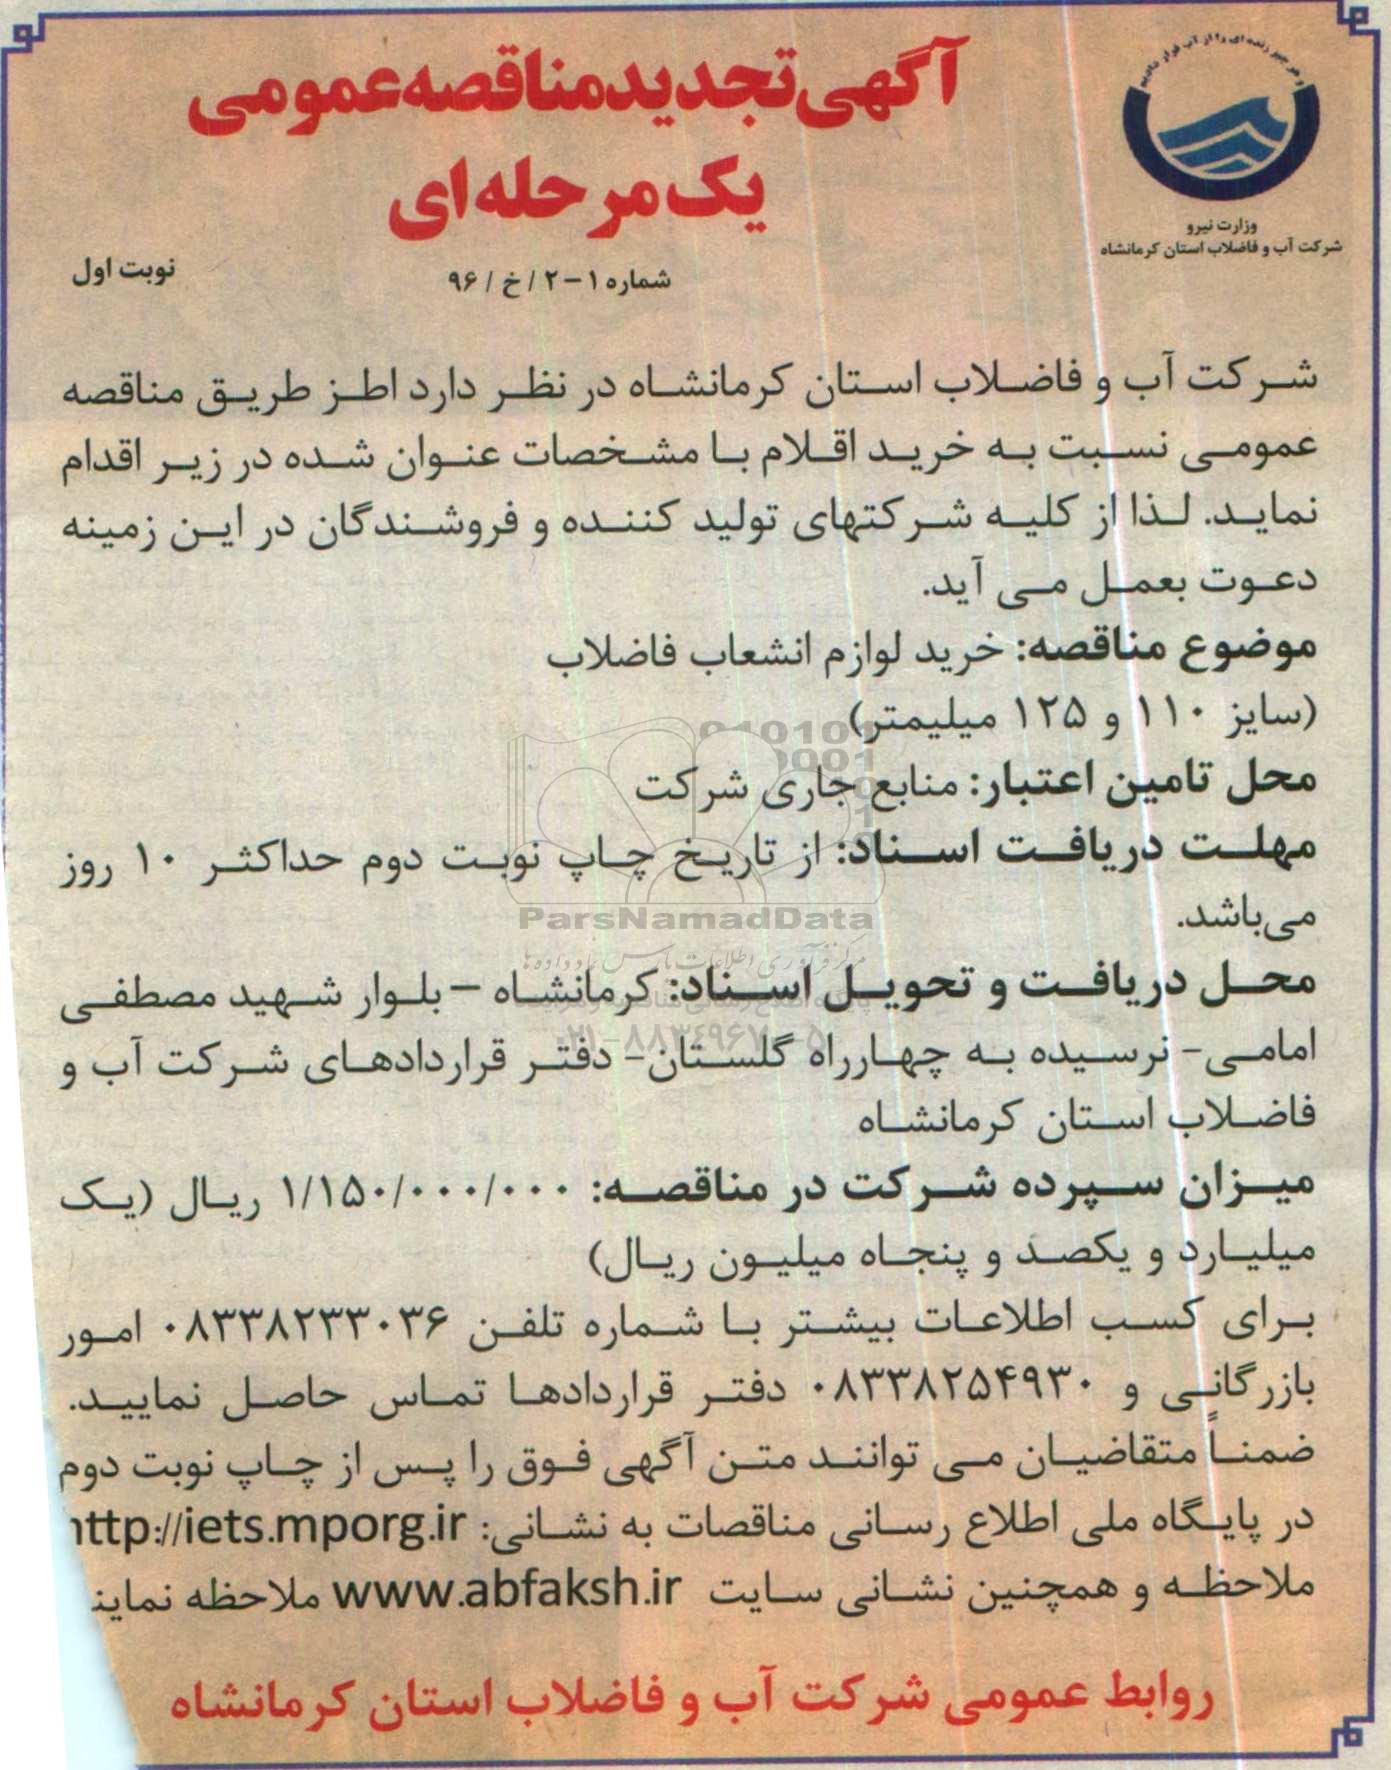 و هر چیز زنده ای را از آب قرار دادیم
وزارت نیرو
شرکت آب و فاضلاب استان کرمانشاه
آگهی تجدید مناقصه عمومی
یک مرحله ای
شماره ۱-۲/خ/۹۶
نوبت اول
شرکت آب و فاضلاب استان کرمانشاه در نظر دارد اطز طریق مناقصه
عمومی نسبت به خرید اقلام با مشخصات عنوان شده در زیر اقدام
نماید. لذا از کلیه شرکتهای تولید کننده و فروشندگان در این زمینه
دعوت بعمل می آید.
موضوع مناقصه: خرید لوازم انشعاب فاضلاب
(سایز ۱۱۰ و ۱۲۵ میلیمتر)
محل تامین اعتبار: منابع جاری شرکت
مهلت دریافت اسناد: از تاریخ چاپ نوبت دوم حداکثر ۱۰ روز
می‌باشد.
ParsNamadData
محل دریافت و تحویل اسناد: کرمانشاه – بلوار شهید مصطفی
امامی- نرسیده به چهارراه گلستان- دفتر قراردادهای شرکت آب و
۰۲۱-۸۸۳۴۹۶۷۰-۵
فاضلاب استان کرمانشاه
میزان سپرده شرکت در مناقصه: ۱/۱۵۰/۰۰۰/۰۰۰ ریال (یک
میلیارد و یکصد و پنجاه میلیون ریال)
برای کسب اطلاعات بیشتر با شماره تلفن ۰۸۳۳۸۲۳۳۰۳۶ امور
بازرگانی و ۰۸۳۳۸۲۵۴۹۳۰ دفتر قراردادها تماس حاصل نمایید.
ضمناً متقاضیان می توانند متن آگهی فوق را پس از چاپ نوبت دوم
در پایگاه ملی اطلاع رسانی مناقصات به نشانی: http://iets.mporg.ir
ملاحظه و همچنین نشانی سایت www.abfaksh.ir ملاحظه نماین
روابط عمومی شرکت آب و فاضلاب استان کرمانشاه